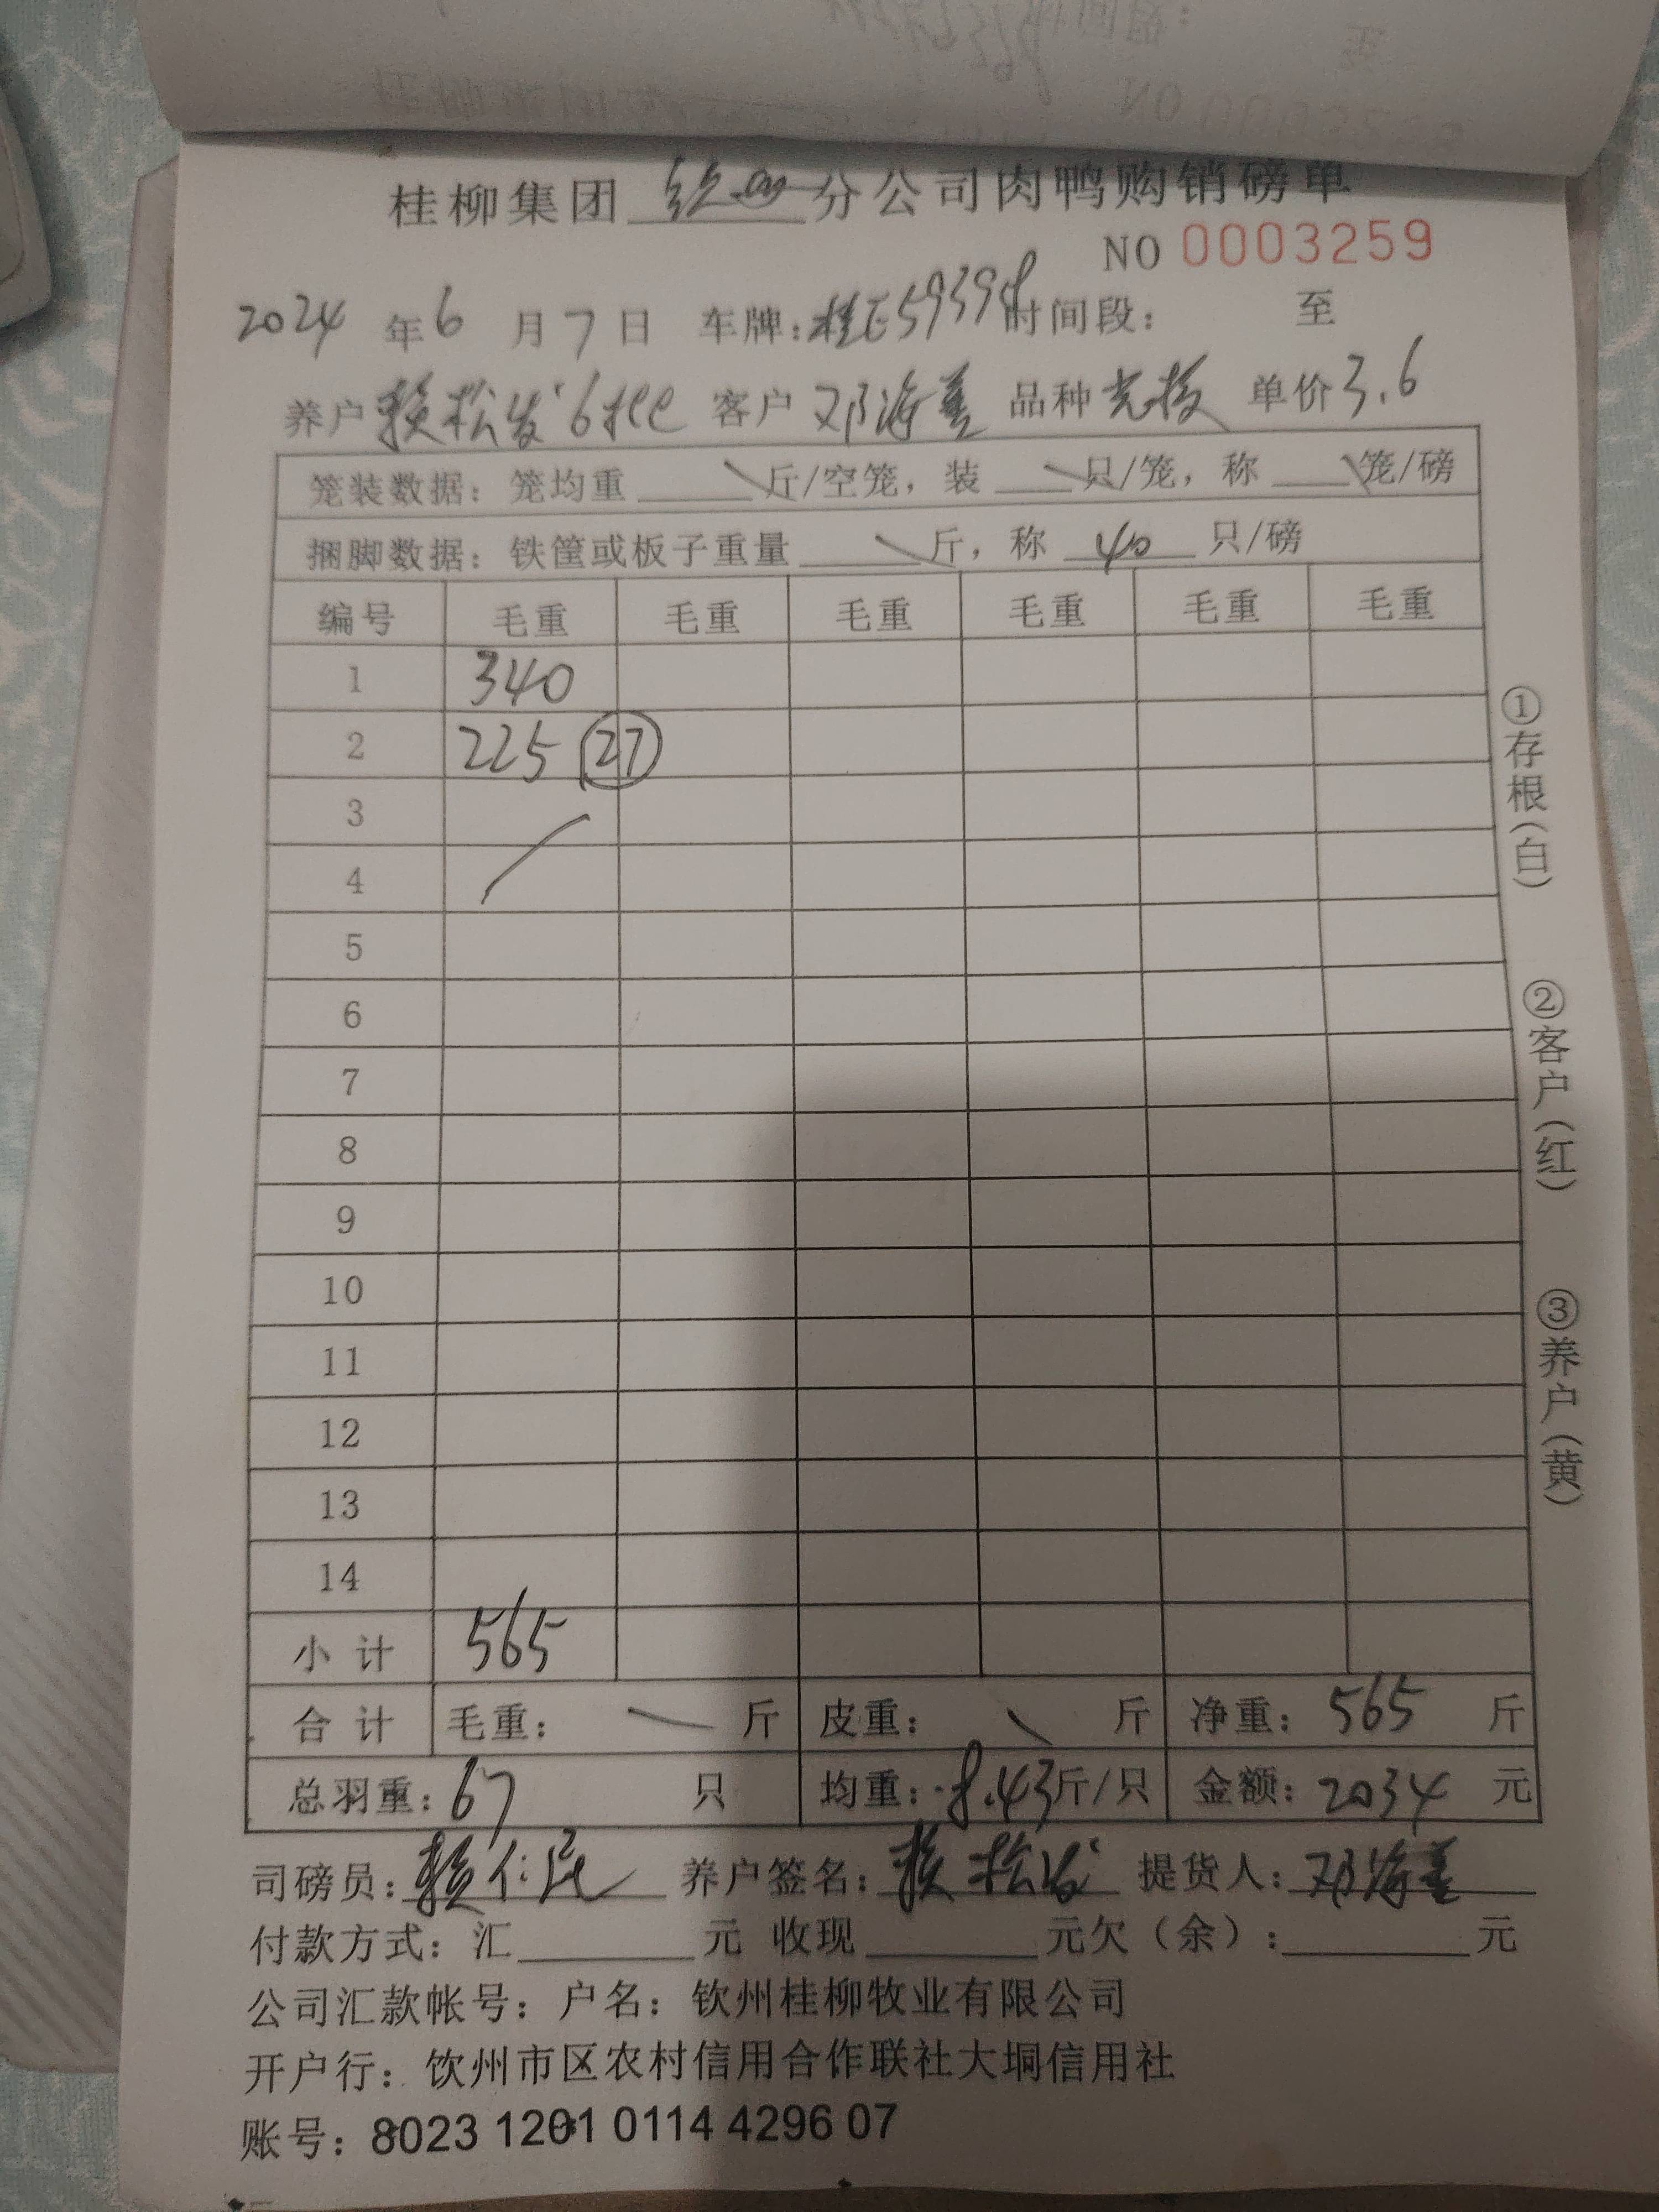 桂柳集团 分公司肉鸭购销磅单
NO 0003259
2024 年 6 月 7 日 车牌: 桂E59398 时间段: 至
养户 赖松发 6批 客户 邓海善 品种 单价 3.6
笼装数据: 笼均重 斤/空笼, 装 只/笼, 称 笼/磅
捆脚数据: 铁筐或板子重量 斤, 称 40 只/磅
编号 毛重 毛重 毛重 毛重 毛重 毛重
1 340
2 225 27
3
4
5
6
7
8
9
10
11
12
13
14
小计 565
合计 毛重: 斤 皮重: 斤 净重: 565 斤
总羽重: 67 只 均重: 8.43 斤/只 金额: 2034 元
司磅员: 赖仁民 养户签名: 赖松发 提货人: 邓海善
付款方式: 汇 元 收现 元欠(余): 元
公司汇款帐号: 户名: 钦州桂柳牧业有限公司
开户行: 钦州市区农村信用合作联社大垌信用社
账号: 8023 1201 0114 4296 07
①存根(白)
②客户(红)
③养户(黄)